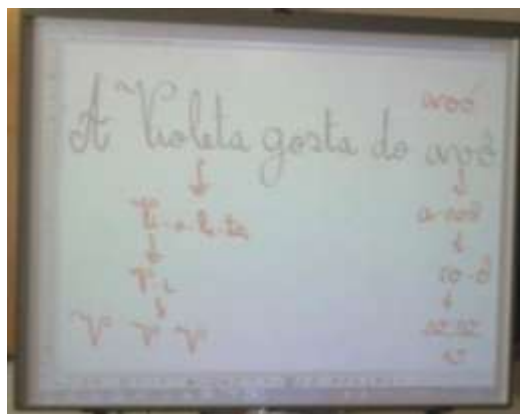 avó
A Violeta gosta do avô
Vi-o-le-ta
a-vô
v-i
v-ô
V v v
v v
v